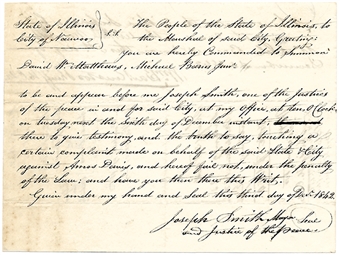 State of Illinois } The People of the State of Illinois, to
City of Nauvoo } S.S. the Marshal of said City, Greeting:
You are hereby Commanded to Summon
David W. Matthews, Michael
to be and appear before me Joseph Smith, one of the justices
of the peace in and for said City, at my Office, at ten O'Clock
on tuesday next the Sixth day of December instant,
there to give testimony, and the truth to say, touching a
certain complaint made on behalf of the said State & City
against Amos Davis, and hereof fail not, under the penalty
of the Law; and have you then there this Writ.
Given under my hand and Seal this third day of Decr. 1842.
Joseph Smith Mayor Seal
and Justice of the Peace.